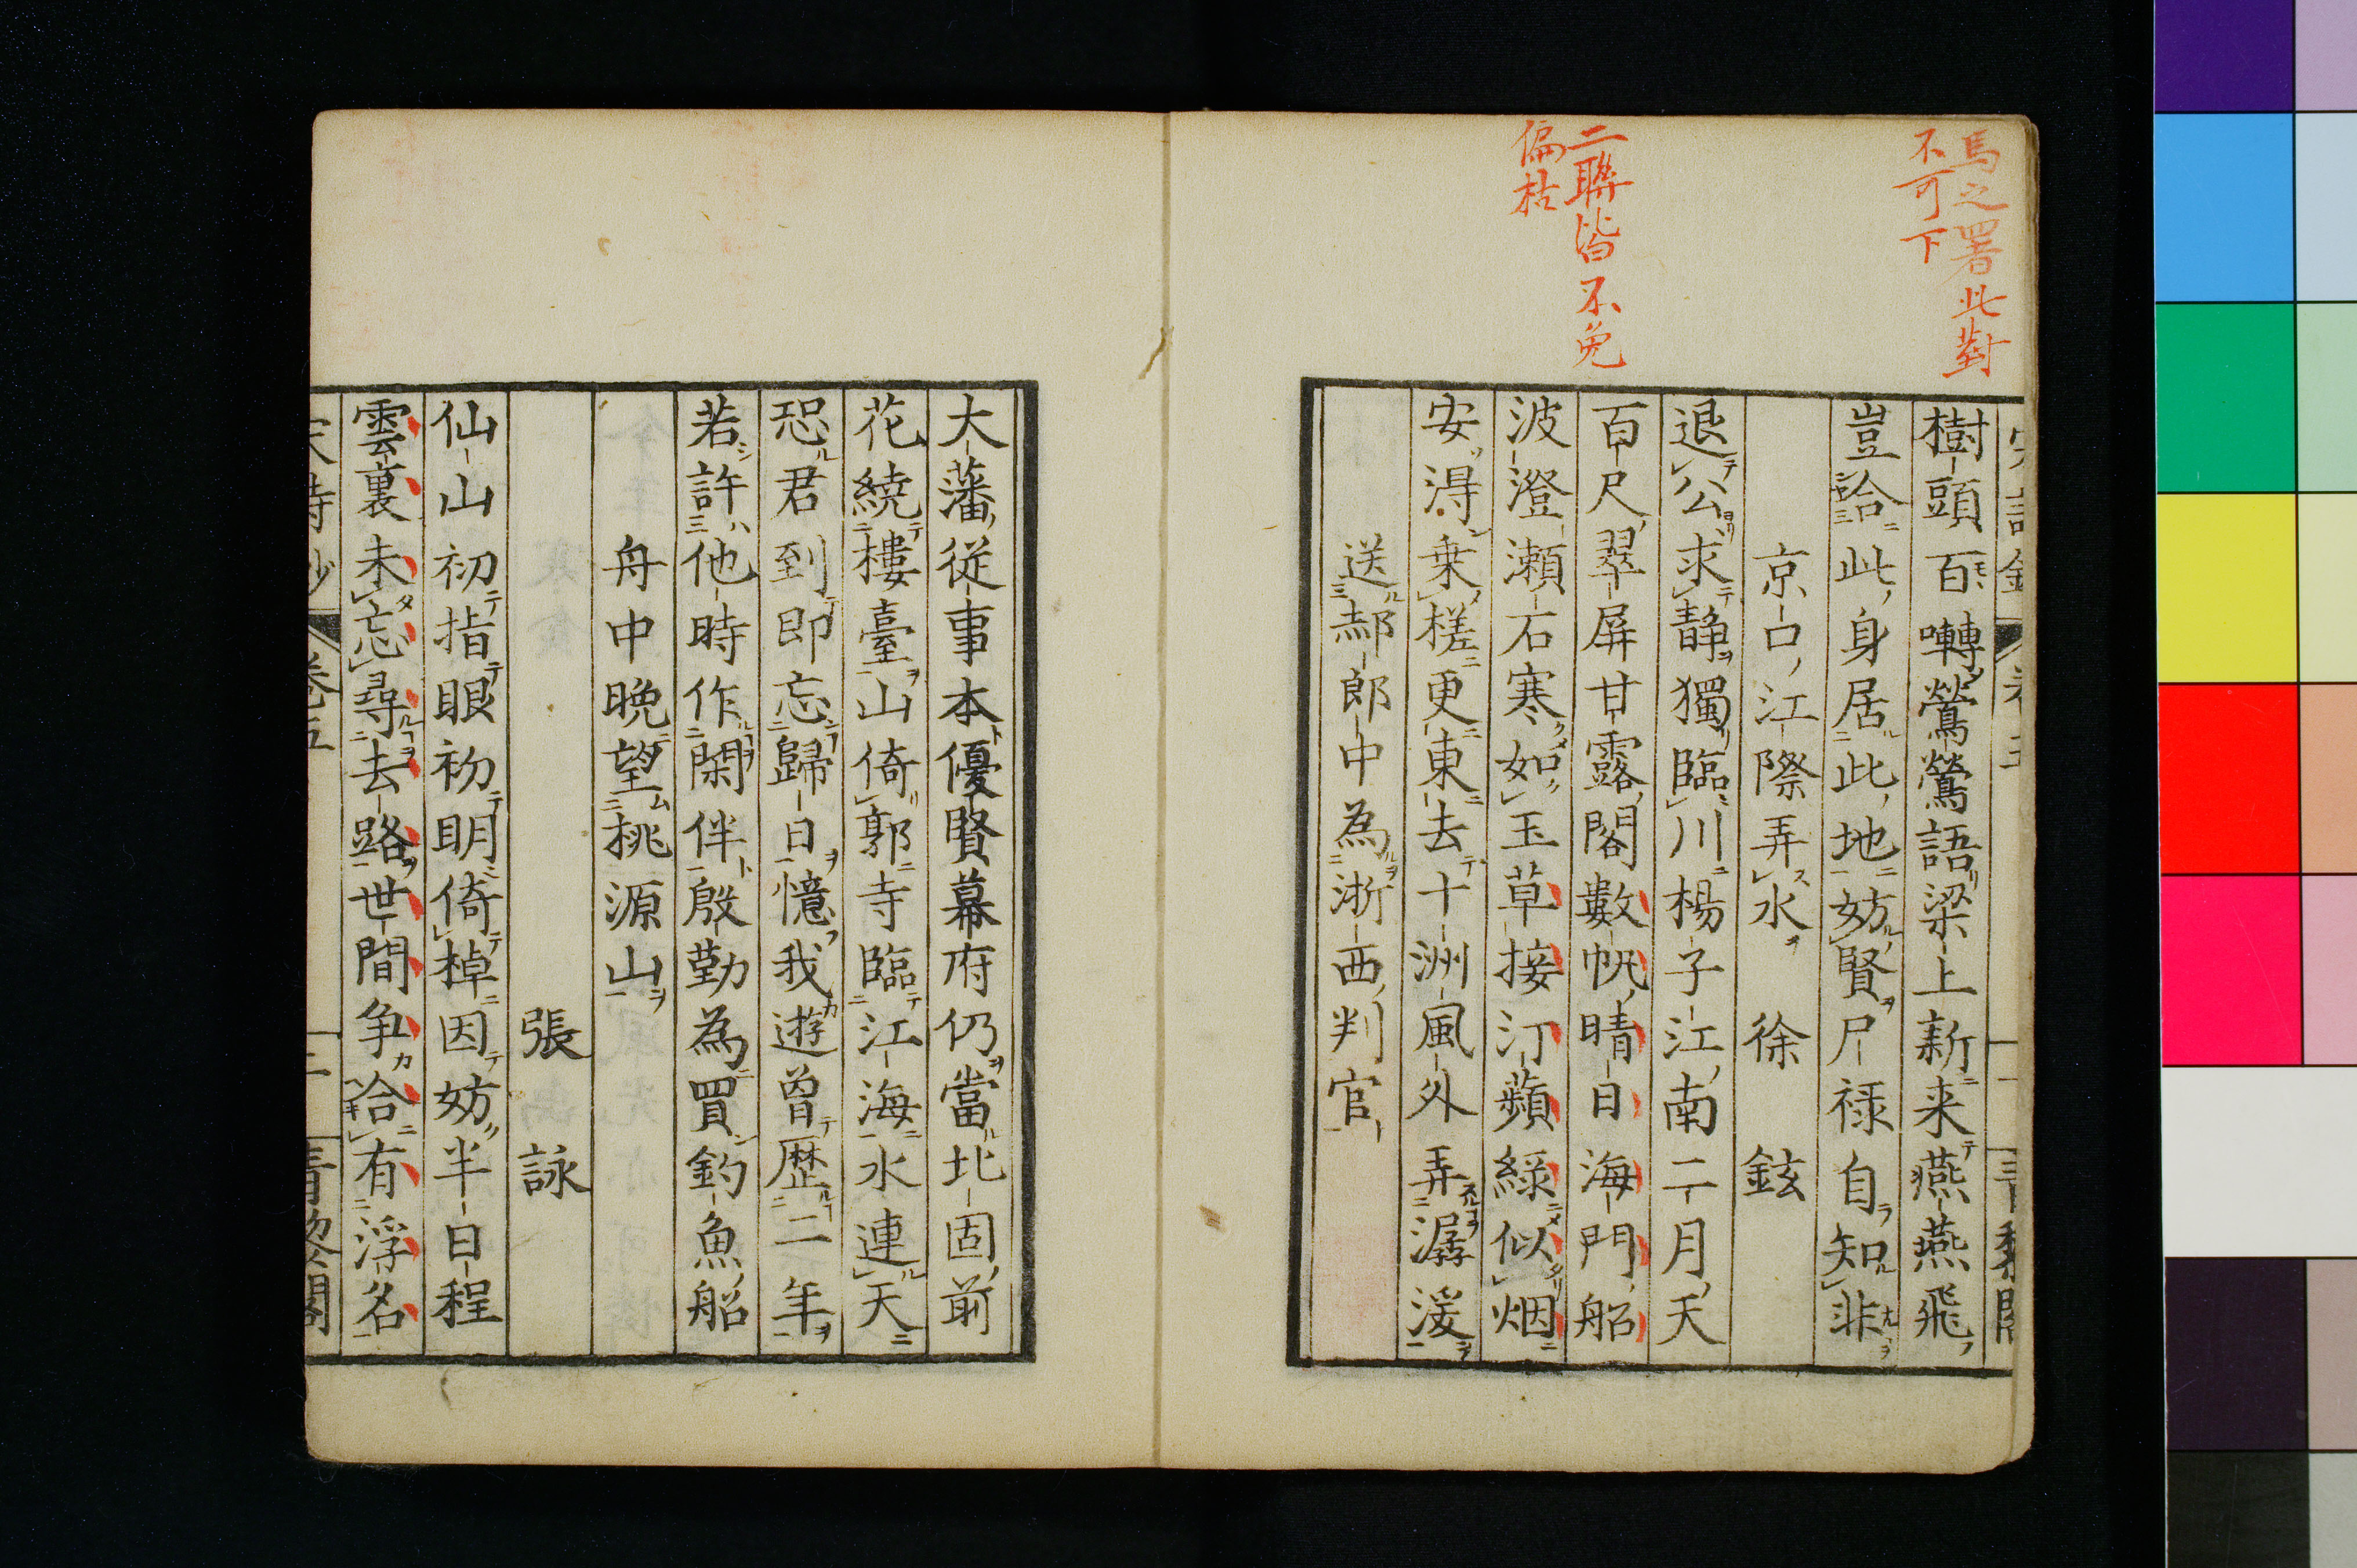 馬之署此對
不可下
二聯皆不免
偏枯
樹頭百囀鶯鶯語梁上新来燕燕飛
豈詥此身居此地妨賢尸禄自知非
京口江際弄水　徐鉉
退公求静獨臨川楊子江南二月天
百尺翠屏甘露閣數帆晴日海門船
波澄瀬石寒如玉草接汀蘋綠似烟
安淂乗槎更東去十洲風外弄潺湲
送郝郎中為浙西判官
大藩従事本優賢幕府仍當北固前
花繞樓臺山倚郭寺臨江海水連天
恐君到即忘歸日憶我遊曽歴二年
若許他時作閑伴殷勤為買釣魚船
舟中晩望桃源山
張詠
仙山初指眼初明倚棹因妨半日程
雲裏未忘尋去路世間争詥有浮名
卷五
二
青藜閣